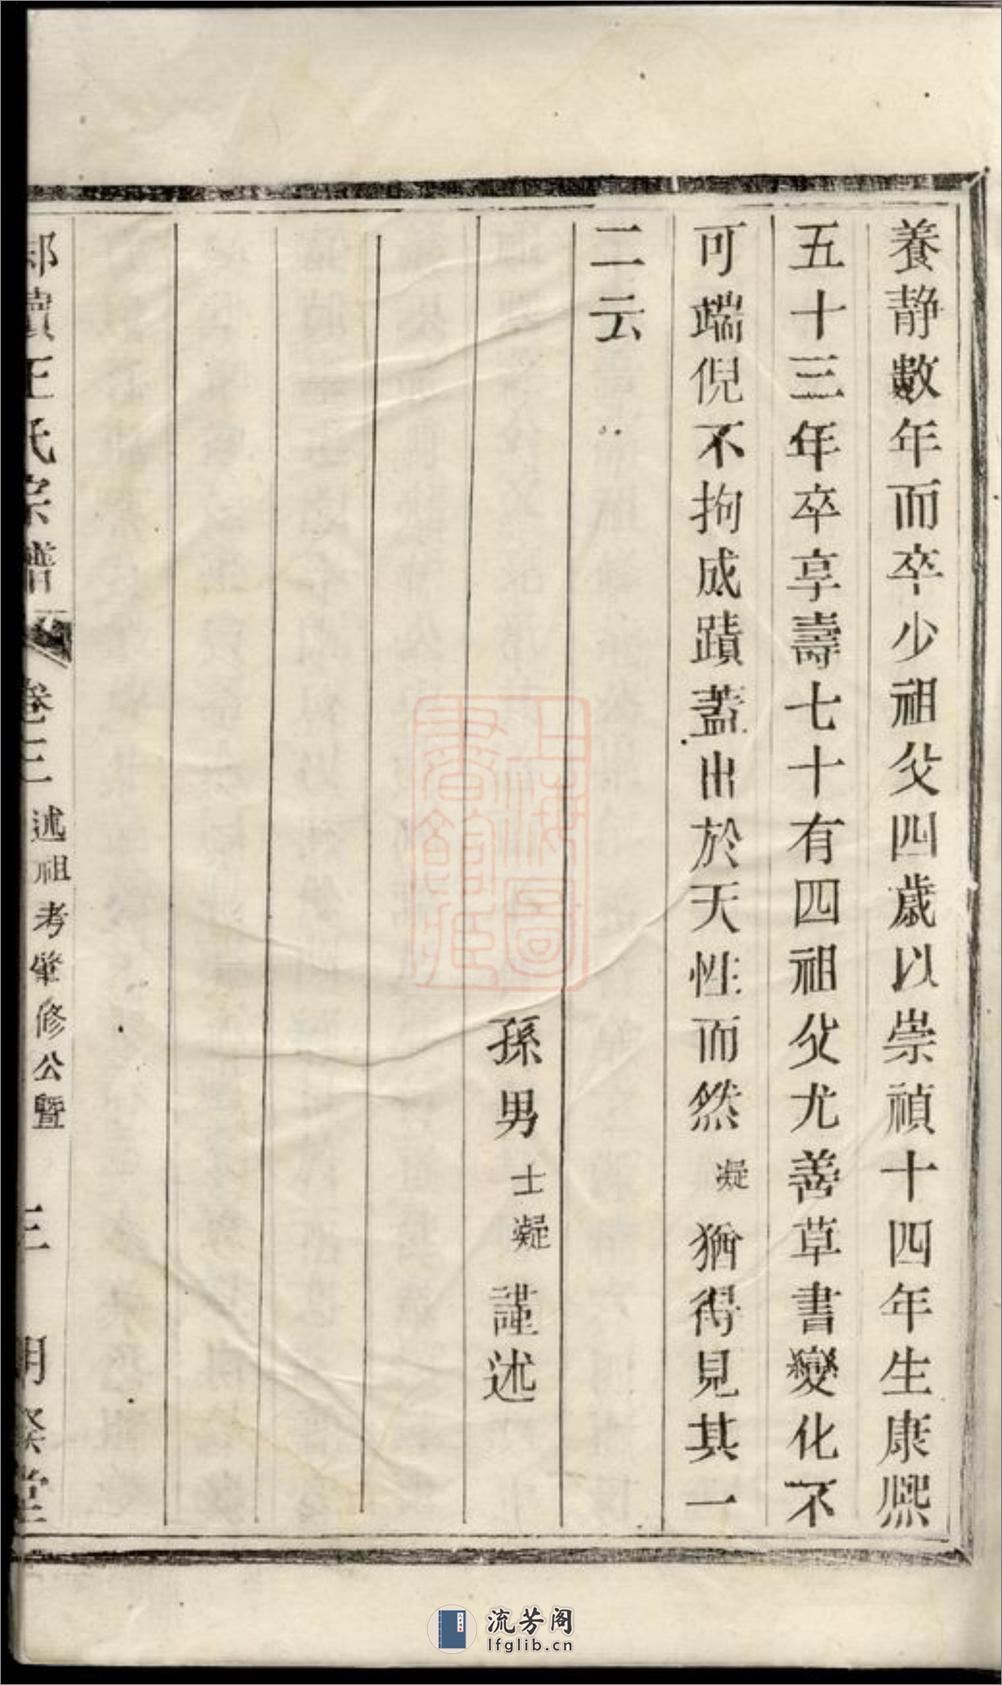 養静數年而卒少祖父四歲以崇禎十四年生康熙
五十三年卒享壽七十有四祖父尤善草書變化不
可端倪不拘成蹟蓋出於天性而然凝猶得見其一
二云
孫男士凝謹述
王氏宗譜
卷三
述祖考肇修公暨
三
堂
上海圖書館藏
流芳阁
lfglib.cn